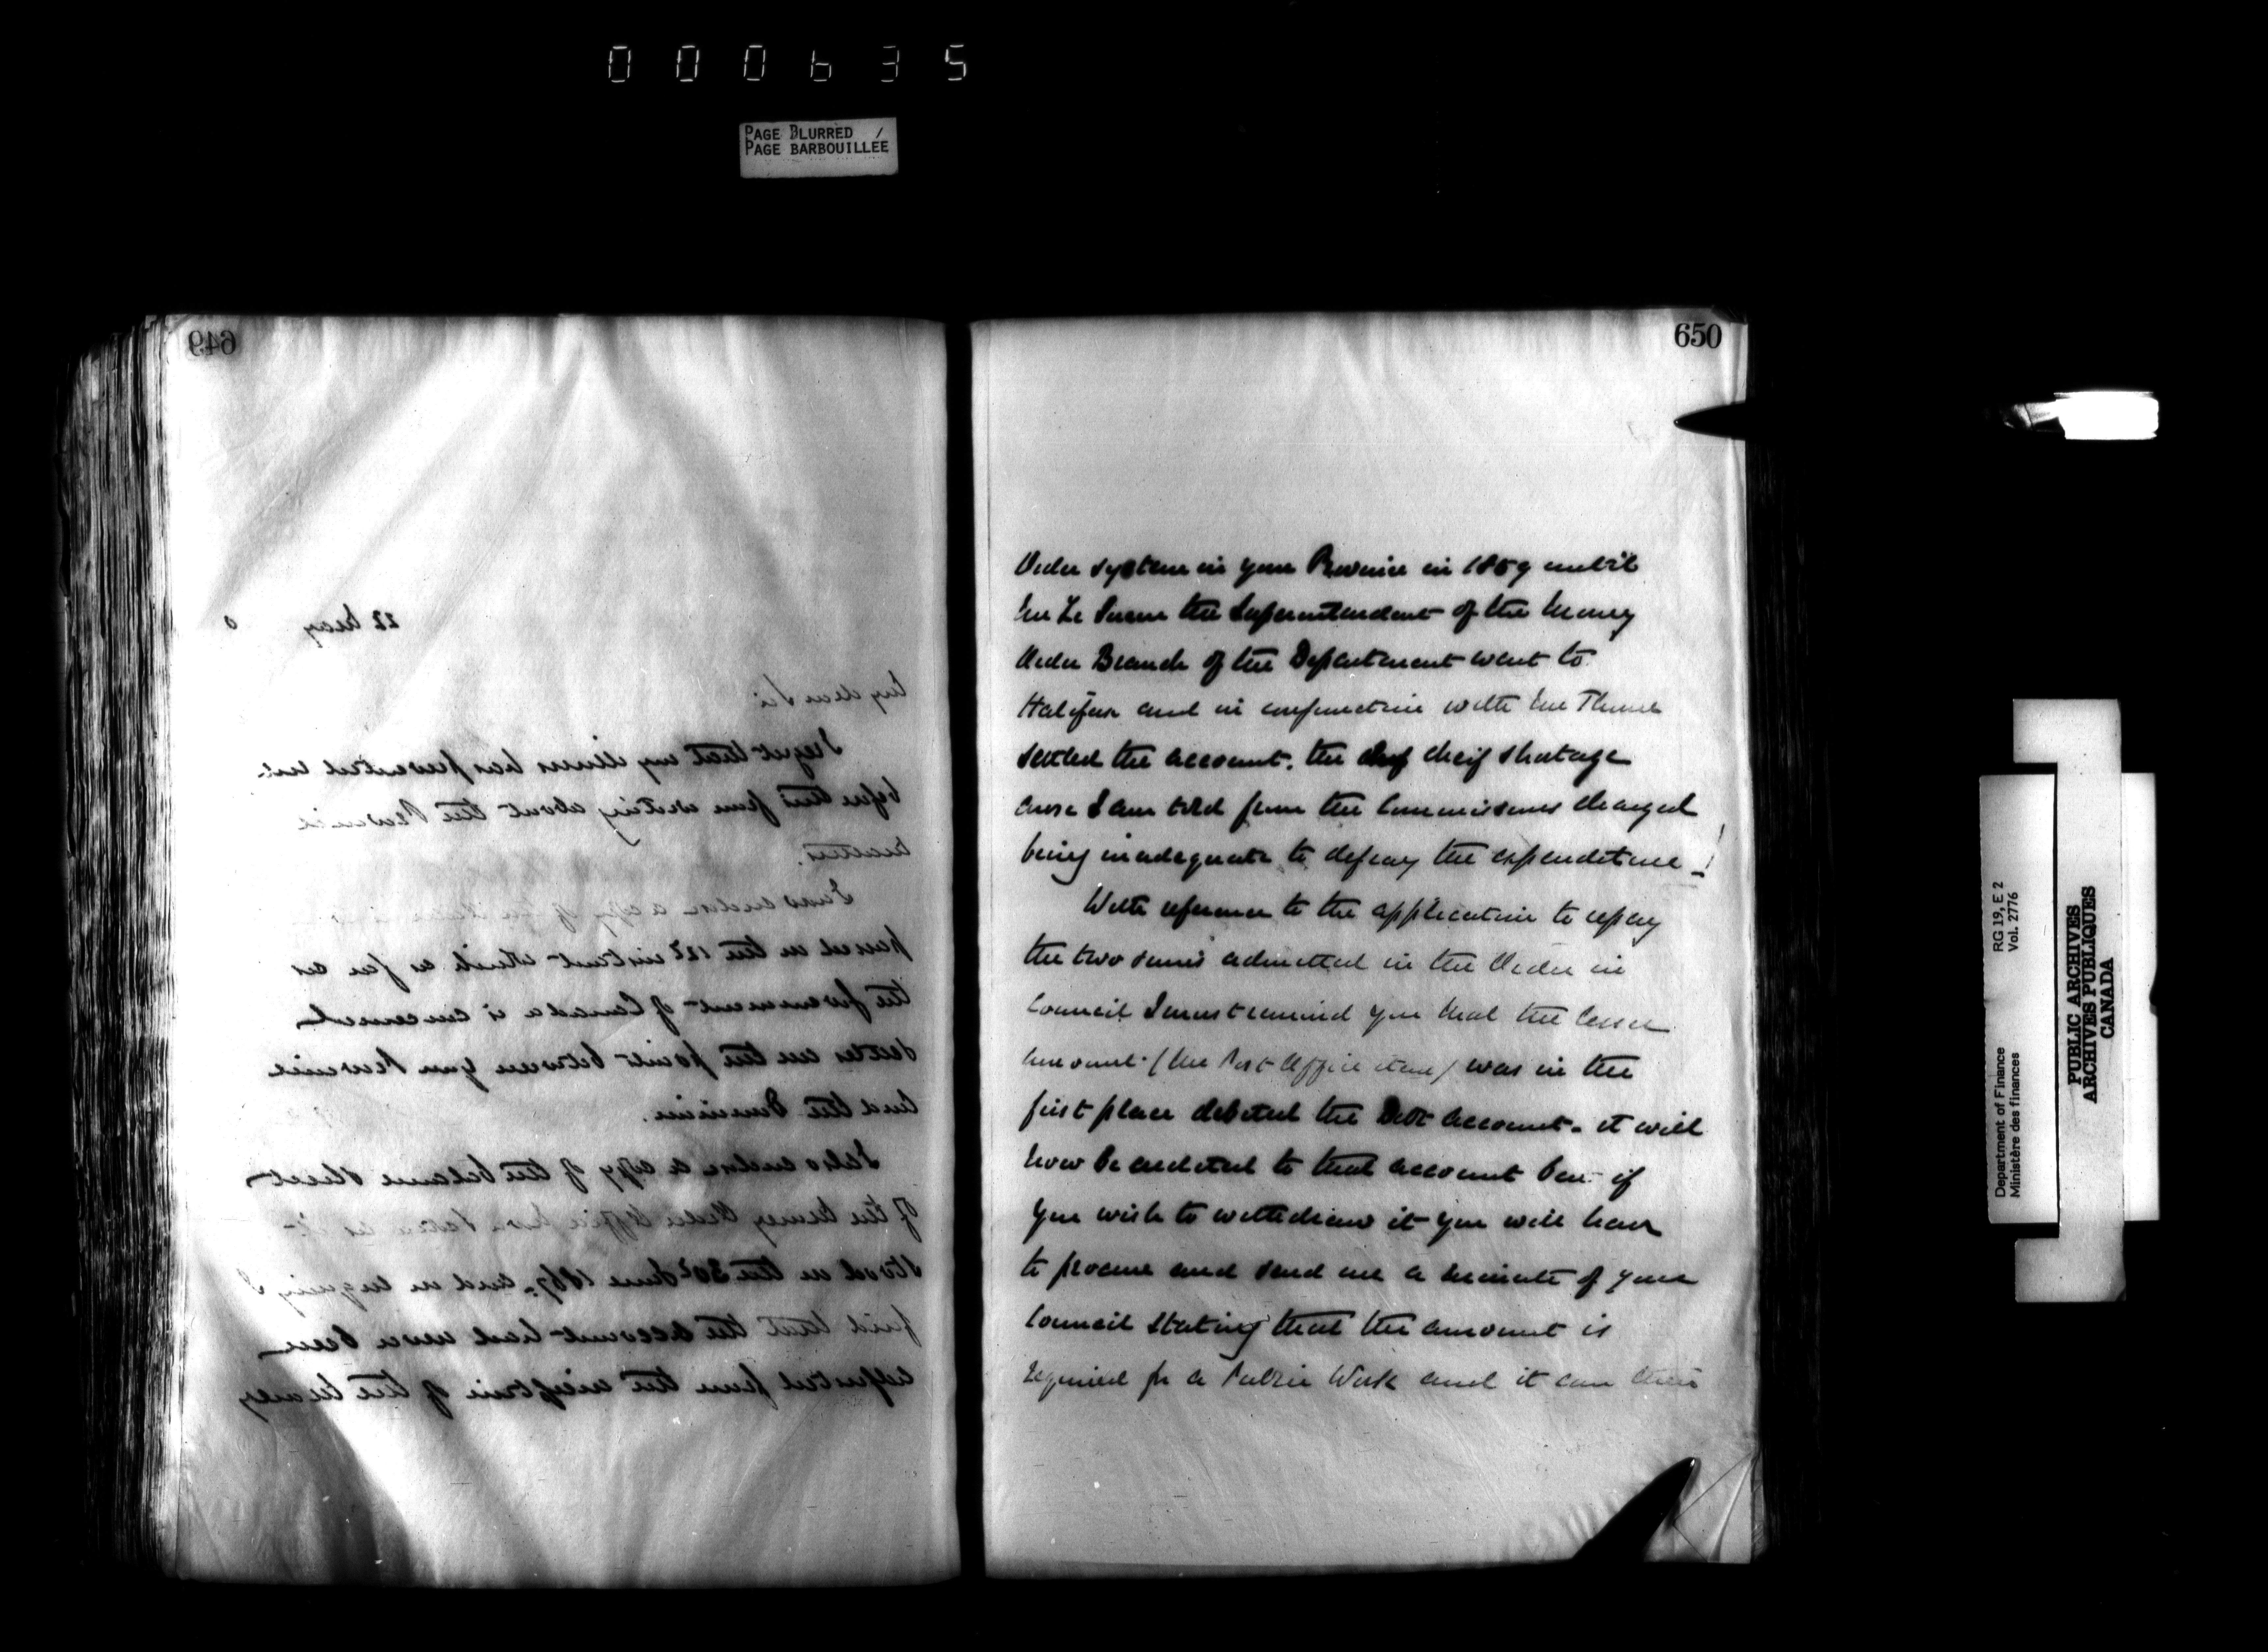 000635
PAGE BLURRED
PAGE BARBOUILLÉE
649
22 May
My dear Sir
I regret that my illness has prevented me
before this from writing about the Province
matters.
I now enclose a copy of the Order in
passed on the 12th instant which as far as
the Government of Canada is concerned
settles all the points between your Province
and the Dominion.
I also enclose a copy of the balance sheet
of the Money Order Office Nova Scotia as it
stood on the 30th June 1867. and on enquiry I
find that the account had never been
adjusted from the inception of the Money
650
Order system in your Province in 1859 until
Mr Le Sueur the Superintendent of the Money
Order Branch of the Department went to
Halifax and in conjunction with Mr Thorne
settled the account. the cheif shortage
arose I am told from the Commissions charged
being inadequate to defray the expenditure!
With reference to the application to repay
the two sums admitted in the Order in
Council I must remind you that the lesser
amount (the Post Office item) was in the
first place debited the Debt account. it will
now be credited to that account but if
you wish to withdraw it you will have
to procure and send me a minute of your
Council stating that the amount is
required for a Public Work and it can then
RG 19, E 2
Vol. 2776
Department of Finance
Ministère des finances
PUBLIC ARCHIVES
ARCHIVES PUBLIQUES
CANADA